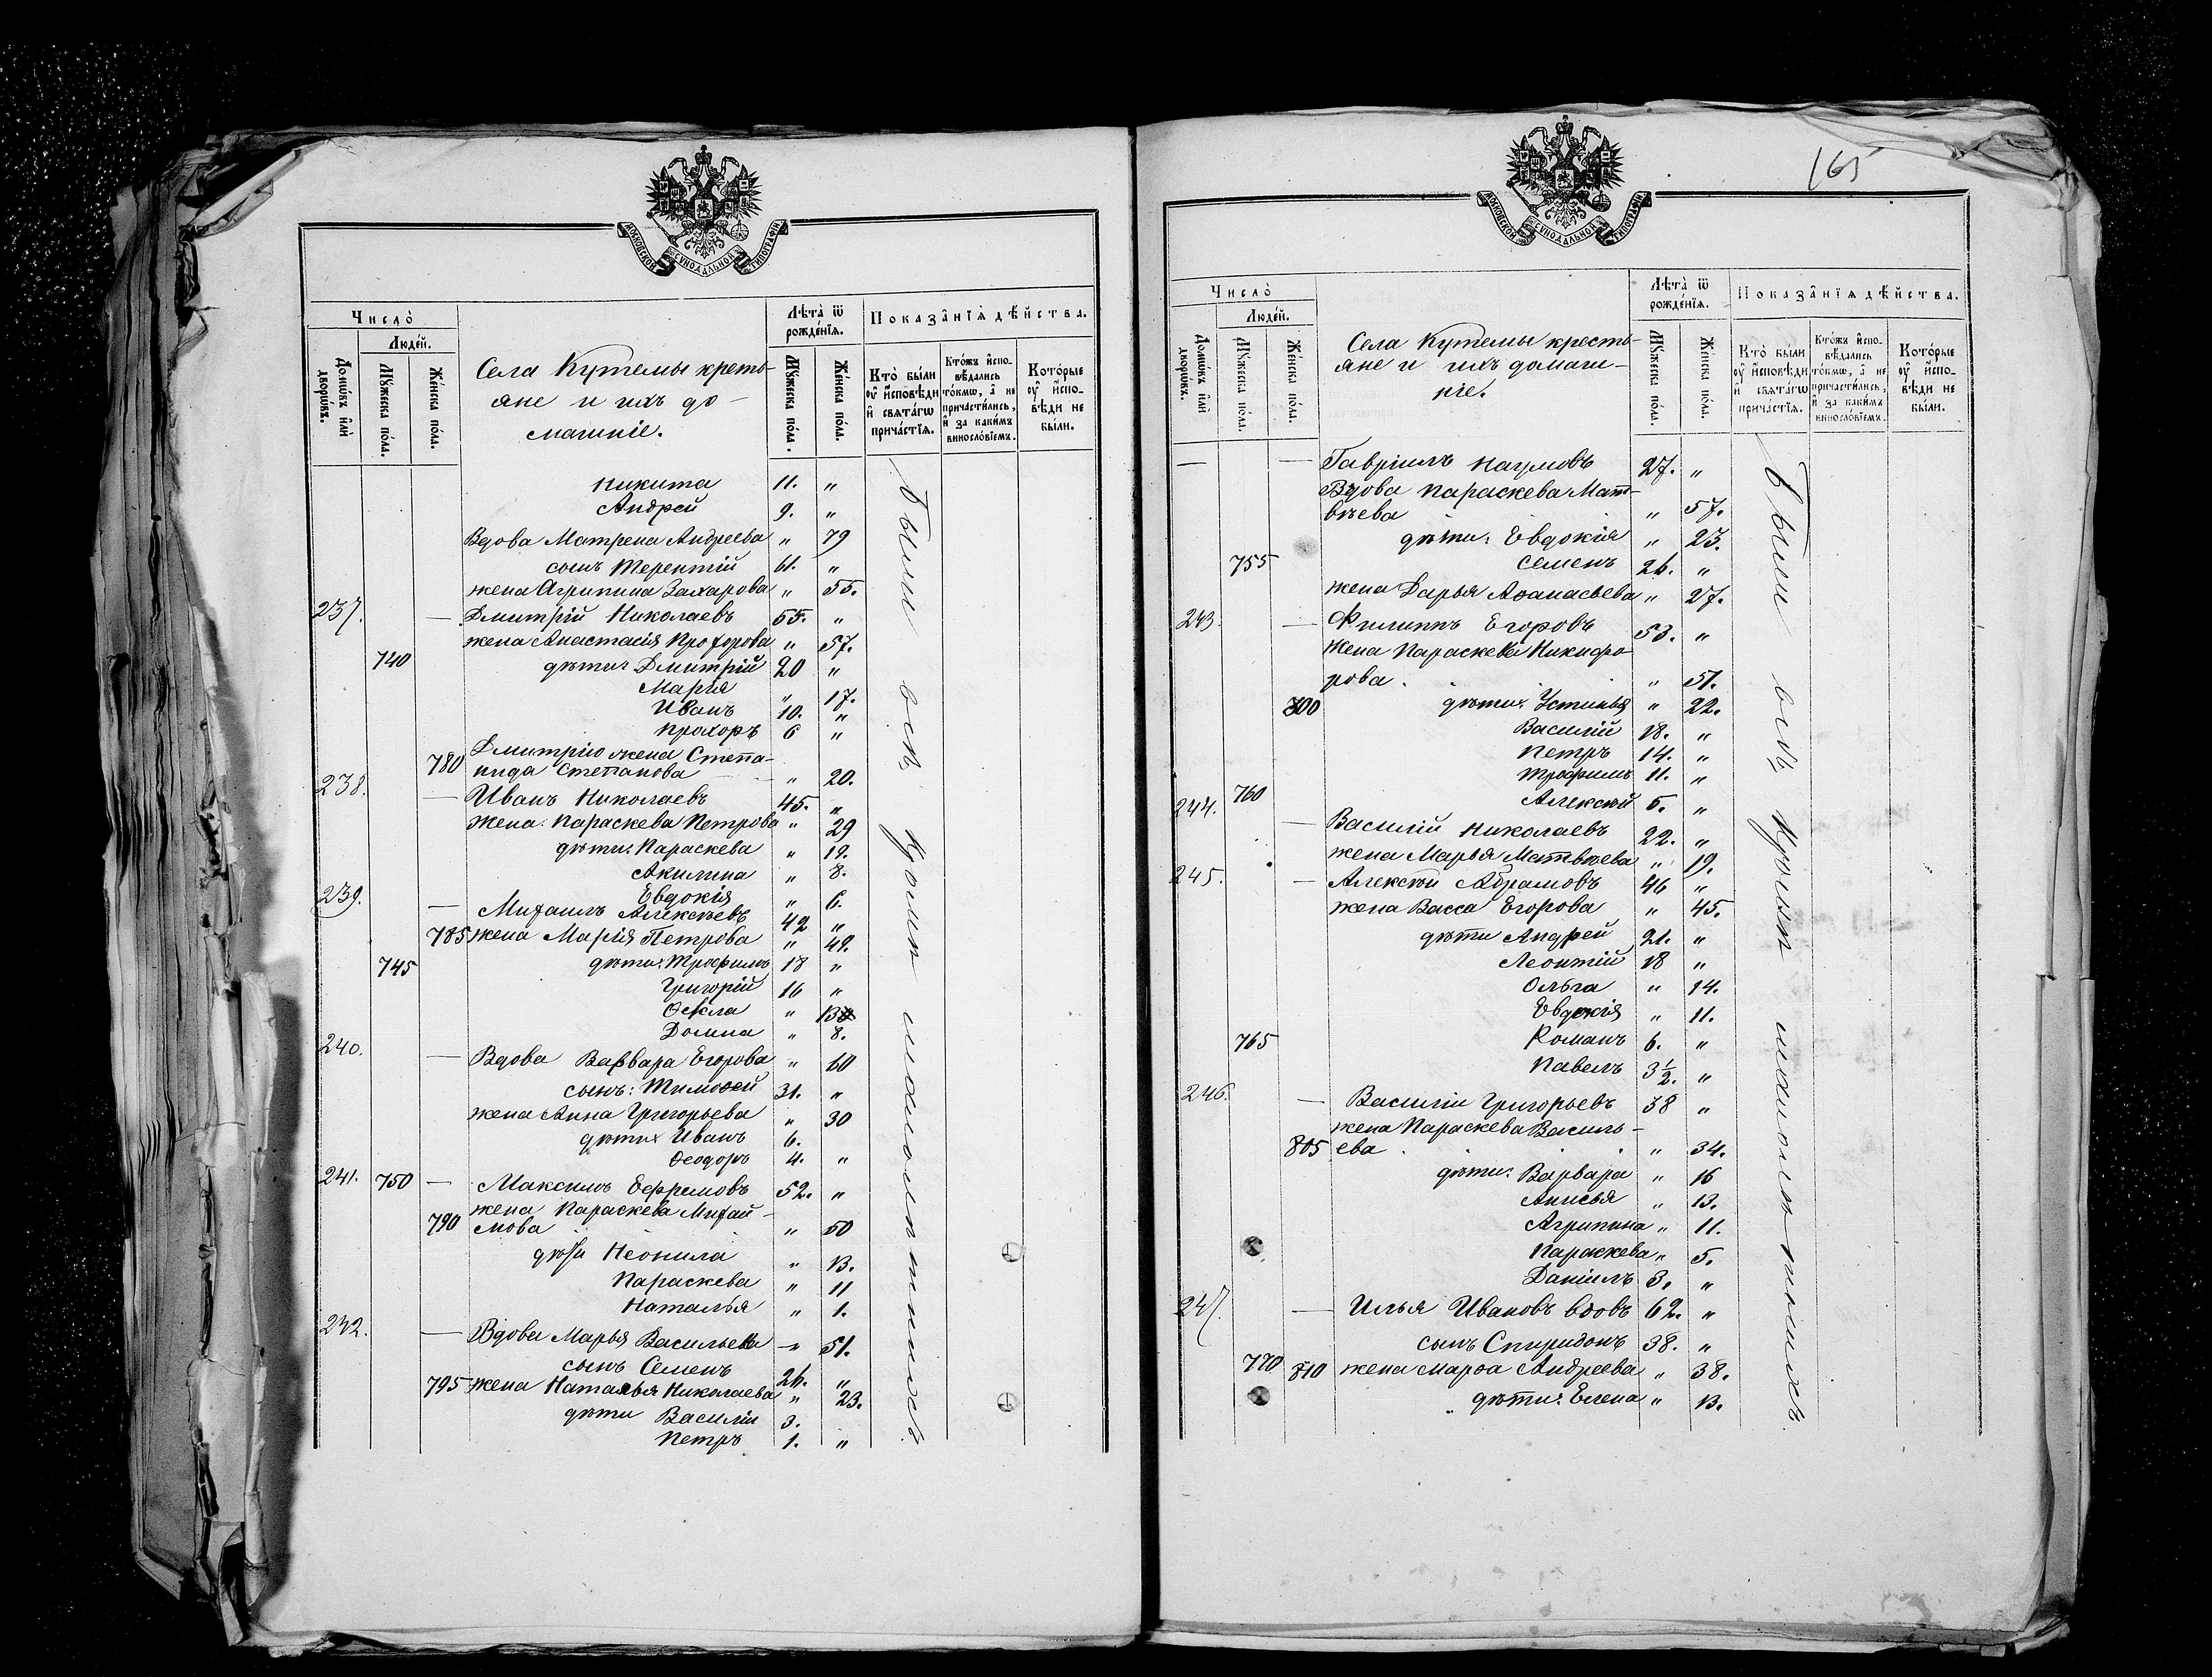 МОСКОВСКОЙ СѴНОДАЛЬНОЙ ТИПОГРАФІИ
Число̀
Людéй.
Домѡ́въ и҆лѝ дворѡ́въ.
Мꙋ́жеска по́ла.
Же́нска по́ла.
Села Кутемы кресть-
яне и ихъ до-
машніе.
Лѣта̀ ѿ рожде́нїѧ.
Мꙋ́жеска по́ла.
Же́нска по́ла.
Показа̑нїѧ дѣ́йства.
Кто̀ бы́ли ᲂу҆ и҆сповѣ́ди и҆ свѧта́гѡ прича́стїѧ.
Кто́жъ и҆спо-
вѣ́дались
то́кмѡ, а҆ не
причасти́лись,
и҆ за каки́мъ
винослóвїемъ.
Кото́рые ᲂу҆ и҆спо-
вѣ́ди не
бы́ли.
Никита 11. "
Андрей 9. "
Вдова Матрена Андреева " 79
сынъ Терентій 61. "
жена Агрипина Захарова " 55.
237. — Дмитрій Николаевъ 55. "
жена Анастасія Прохорова " 57.
740 дѣти: Дмитрій 20 "
Марія " 17.
Иванъ 10. "
Прохоръ 6 "
Дмитрію жена Степа-
780 нида Степанова " 20.
238. — Иванъ Николаевъ 45. "
Жена: Параскева Петрова " 29
дѣти: Параскева " 12.
Акилина " 8.
Евдокія " 6.
239. — Михаилъ Алексѣевъ 42 "
785 жена Марія Петрова " 42.
745 дѣти: Трофимъ 18 "
Григорій 16 "
Ѳекла " 13
Домна " 8.
240. — Вдова Варвара Егорова " 60
сынъ: Тимоѳей 31. "
жена Анна Григорьева " 30
дѣти Иванъ 6.
Ѳеодоръ 4. "
241. 750 — Максимъ Ефремовъ 52. "
жена Параскева Михай-
790 лова " 50
дѣти Неонила " 13.
Параскева " 11
Наталья " 1.
242. — Вдова Марья Васильева " 51.
сынъ Семенъ 26. "
795 жена Наталья Николаева " 23.
дѣти Василій 3.
Петръ 1. "
Были всѣ кромѣ малолѣтнихъ.
165
МОСКОВСКОЙ СѴНОДАЛЬНОЙ ТИПОГРАФІИ
Число̀
Людéй.
Домѡ́въ и҆лѝ дворѡ́въ.
Мꙋ́жеска по́ла.
Же́нска по́ла.
Села Кутемы кресть-
яне и ихъ домаш-
ніе.
Лѣта̀ ѿ рожде́нїѧ.
Мꙋ́жеска по́ла.
Же́нска по́ла.
Показа̑нїѧ дѣ́йства.
Кто̀ бы́ли ᲂу҆ и҆сповѣ́ди и҆ свѧта́гѡ прича́стїѧ.
Кто́жъ и҆спо-
вѣ́дались
то́кмѡ, а҆ не
причасти́лись,
и҆ за каки́мъ
винослóвїемъ.
Кото́рые ᲂу҆ и҆спо-
вѣ́ди не
бы́ли.
— — Гавріилъ Наумовъ 27. "
Вдова Параскева Мат-
вѣева " 57.
дѣти: Евдокія " 23.
755 Семенъ 26. "
жена Дарья Аѳанасьева " 27.
243. — Филиппъ Егоровъ 53. "
Жена Параскева Никифо-
рова " 51.
800 дѣти: Устинья " 22.
Василій 18. "
Петръ 14. "
Трофимъ 11. "
760 Алексѣй 5. "
244. — Василій Николаевъ 22. "
жена Марья Матвѣева " 19.
245. — Алексѣй Абрамовъ 46 "
жена Васса Егорова " 45.
дѣти Андрей 21. "
Леонтій 18 "
Ольга " 14.
Евдокія " 11.
765 Романъ 6. "
Павелъ 3½. "
246. — Василій Григорьевъ 38 "
жена Параскева Василь-
805 ева " 34.
дѣти: Варвара " 16
Анисья " 13.
Агрипина " 11.
Параскева " 5.
Даніилъ 3. "
247. — Илья Ивановъ вдовъ 62. "
сынъ Спиридонъ 38. "
770 810 жена Марѳа Андреева " 38.
дѣти: Елена " 13.
Были всѣ кромѣ малолѣтнихъ.